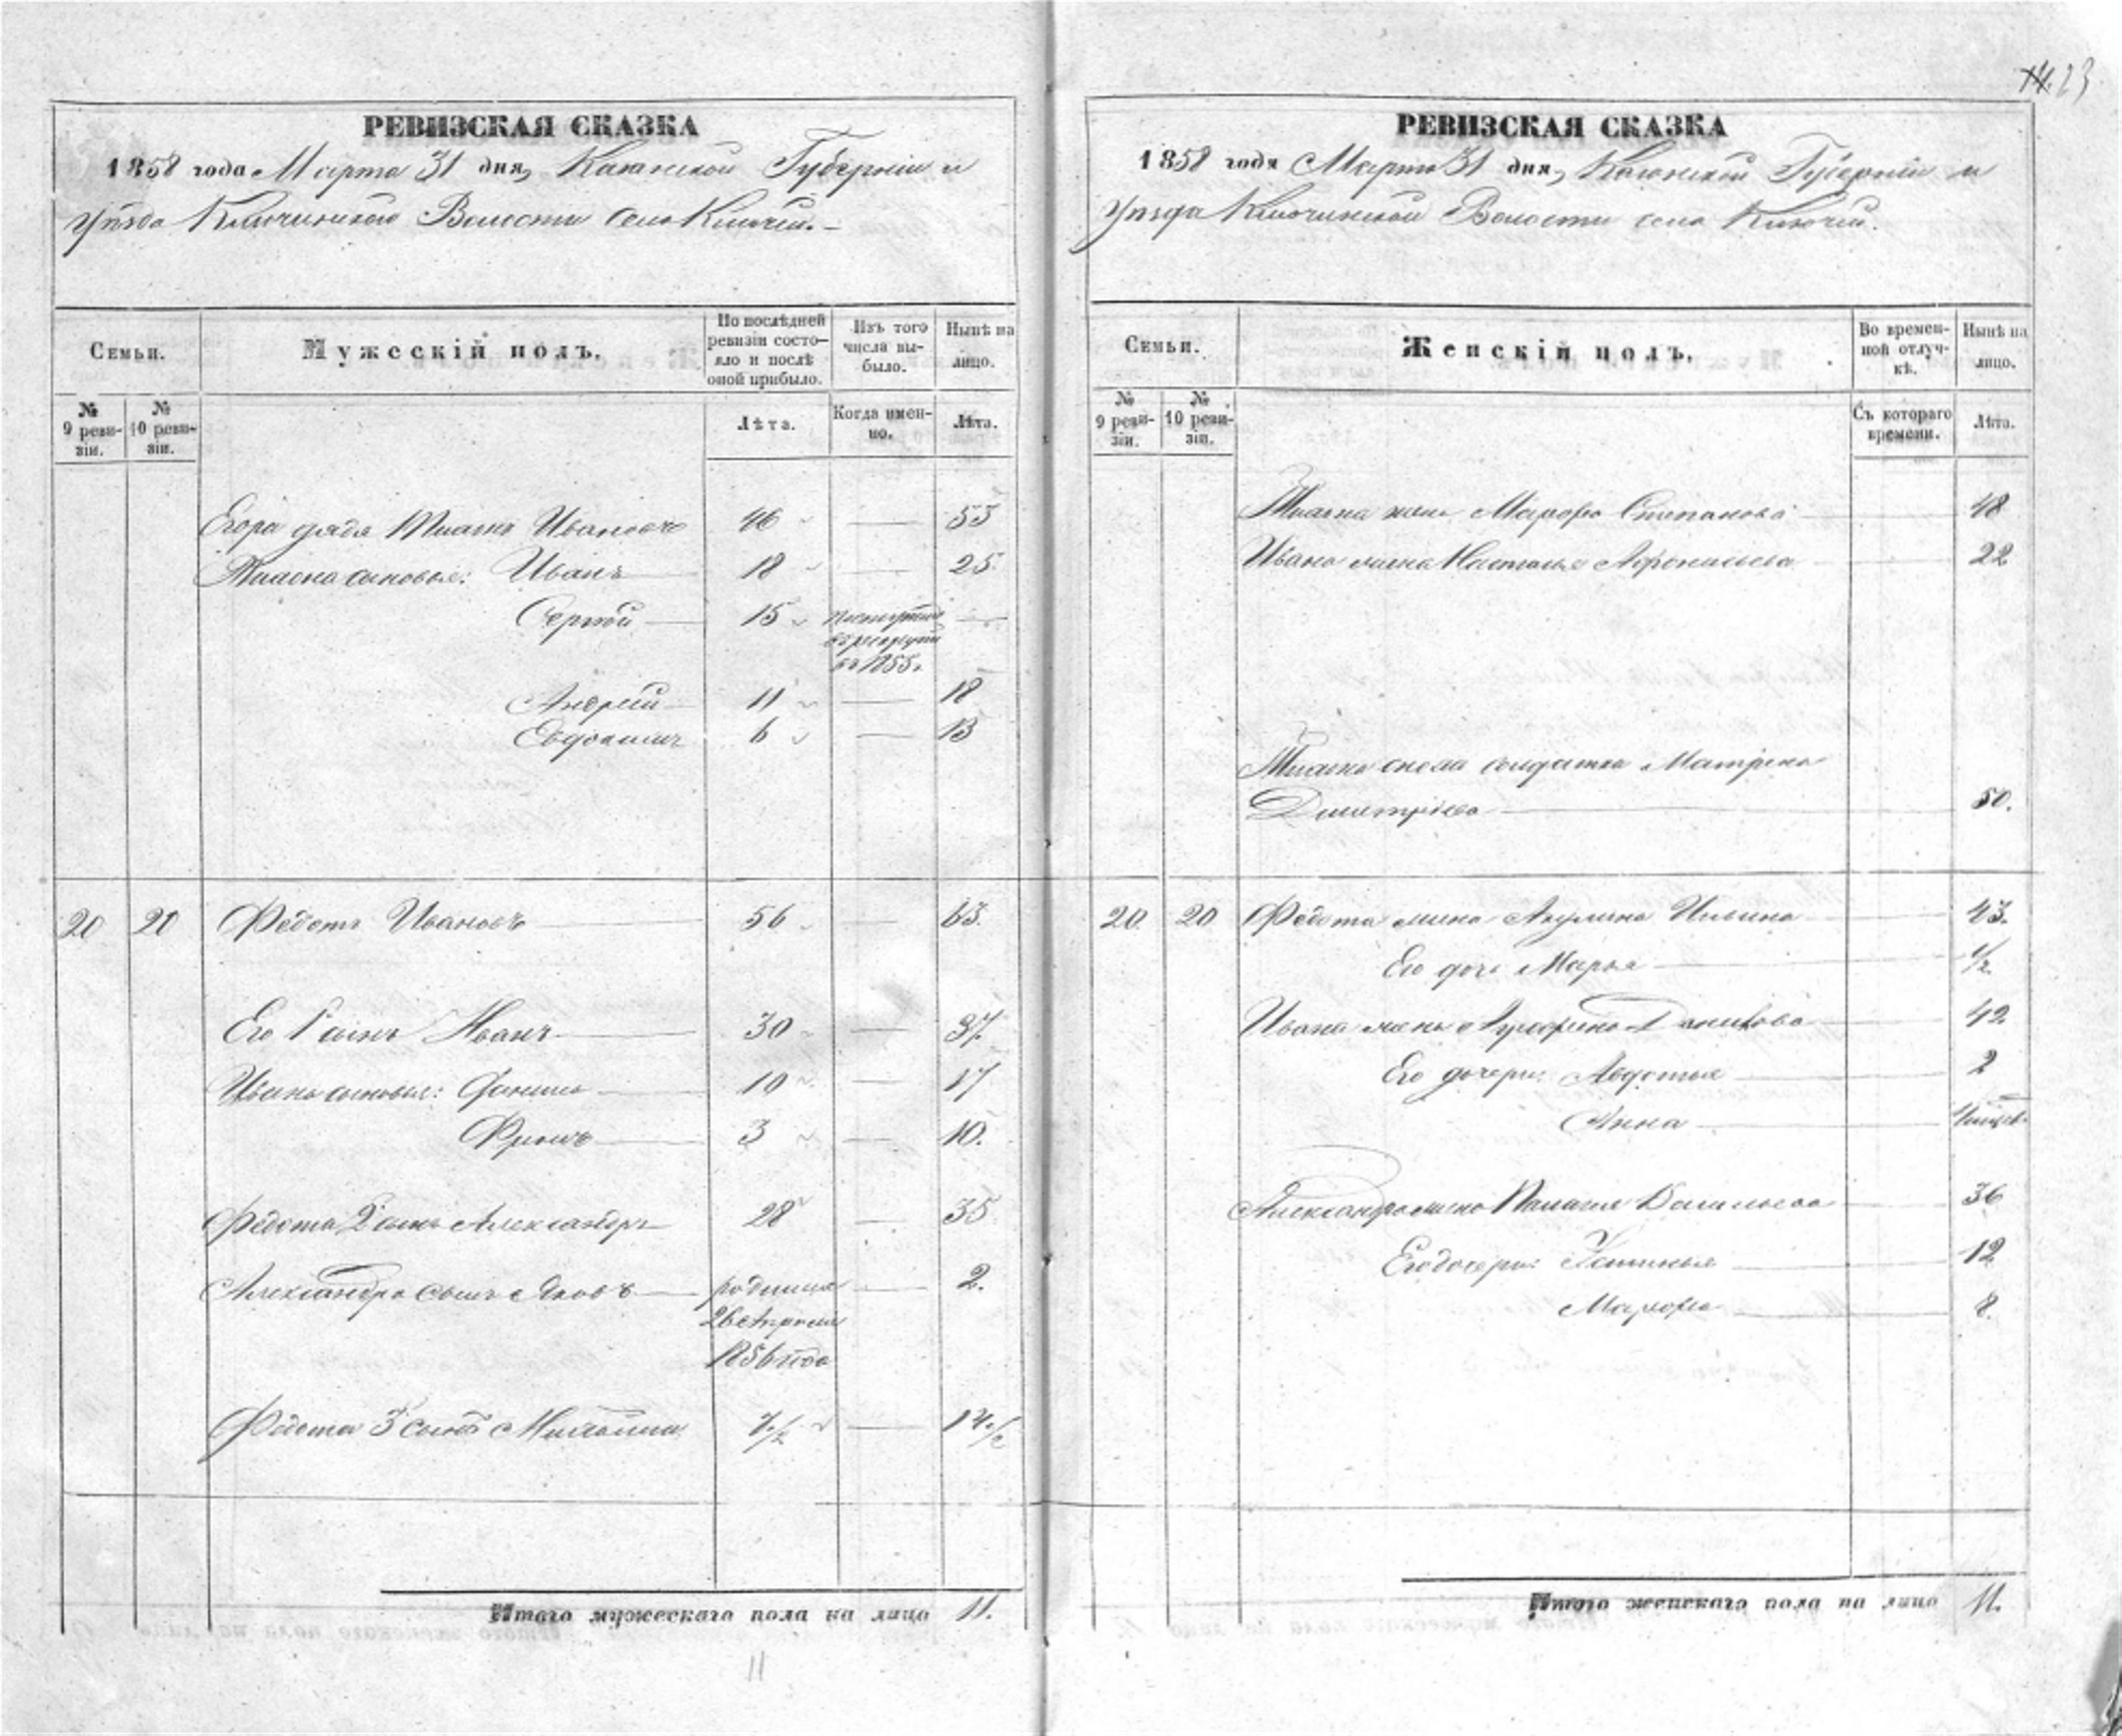 14. 23
РЕВИЗСКАЯ СКАЗКА
1858 года Марта 31 дня, Казанской Губернiи и
Уѣзда Ключинской Волости села Ключей.
Семьи.
Мужескiй полъ.
По послѣдней ревизiи состояло и послѣ оной прибыло.
Изъ того числа выбыло.
Нынѣ на лицо.
№ 9 ревизiи.
№ 10 ревизiи.
Лѣта.
Когда именно.
Лѣта.
Егора дядя Ивановъ 46 — 53
сыновья: Иванъ 18 — 25
Сергей 15 въ рекруты въ 1855 г. —
Андрей 11 — 18
Евдокимъ 6 — 13
20 20 Федотъ Ивановъ 56 63.
Его 1 сынъ Иванъ 30 — 37.
Ивана сыновья: Данила 10 — 17
3 — 10.
Федота 2 сынъ Александръ 28 — 35
Александра сынъ Яковъ родился — 2.
26 Апреля
1856 года
Федота 3 сынъ Михайла 7 1/2 — 14 1/2
Итого мужескаго пола на лицо 11.
11
РЕВИЗСКАЯ СКАЗКА
1858 года Марта 31 дня, Казанской Губернiи и
Уѣзда Ключинской Волости села Ключей.
Семьи.
Женскiй полъ.
Во временной отлучкѣ.
Нынѣ на лицо.
№ 9 ревизiи.
№ 10 ревизiи.
Съ котораго времени.
Лѣта.
жена Марфа Степанова 48
Ивана жена Настасья 22
сноха солдатка Матрена
Дмитрiева 50.
20 20 Федота жена Акулина Ильина 43.
Его дочь Марья 1/2
Ивана жена Аграфена Данилова 42
Его дочери: Авдотья 2
Анна
Александра жена Палагея 36
Его дочери: Устинья 12
Марфа 8.
Итого женскаго пола на лицо 11.